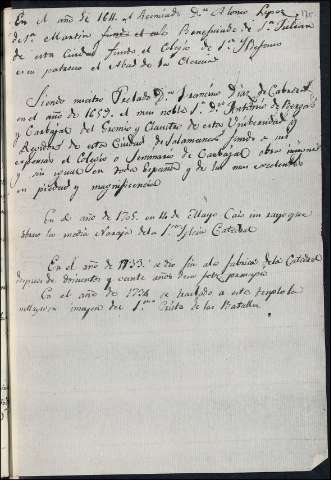 En el año de 1611 el Licenciado Dn. Alonso Lopez
de Sn. Martin Beneficiado de Sn. Julian
de esta Ciudad fundó el Colegio de Sn. Ildefonso
patrono el Abad de la Clerecia
Siendo nuestro Prelado Dn. Francisco Diaz de Cabrera
en el año de 1659. el muy noble Sr. Dn. Antonio de
y Carbajal del Gremio y Claustro de esta Universidad y
Regidor de esta Ciudad de Salamanca fundó a sus
expensas el Colegio o Seminario de Carbajal obra insigne
y sin igual en toda España y de las mas excelentes
en piedad y magnificencia
En el año de 1705. en 14 de Mayo Caio un rayo que
abrio la media Naranja de la Sta. Iglesia Catedral
En el año de 1733. se dio fin a la fabrica de la Catedral
despues de doscientos y veinte años de su principio
En el año de 1734 se trasladó a este templo la
imagen del Smo. Cristo de las Batallas